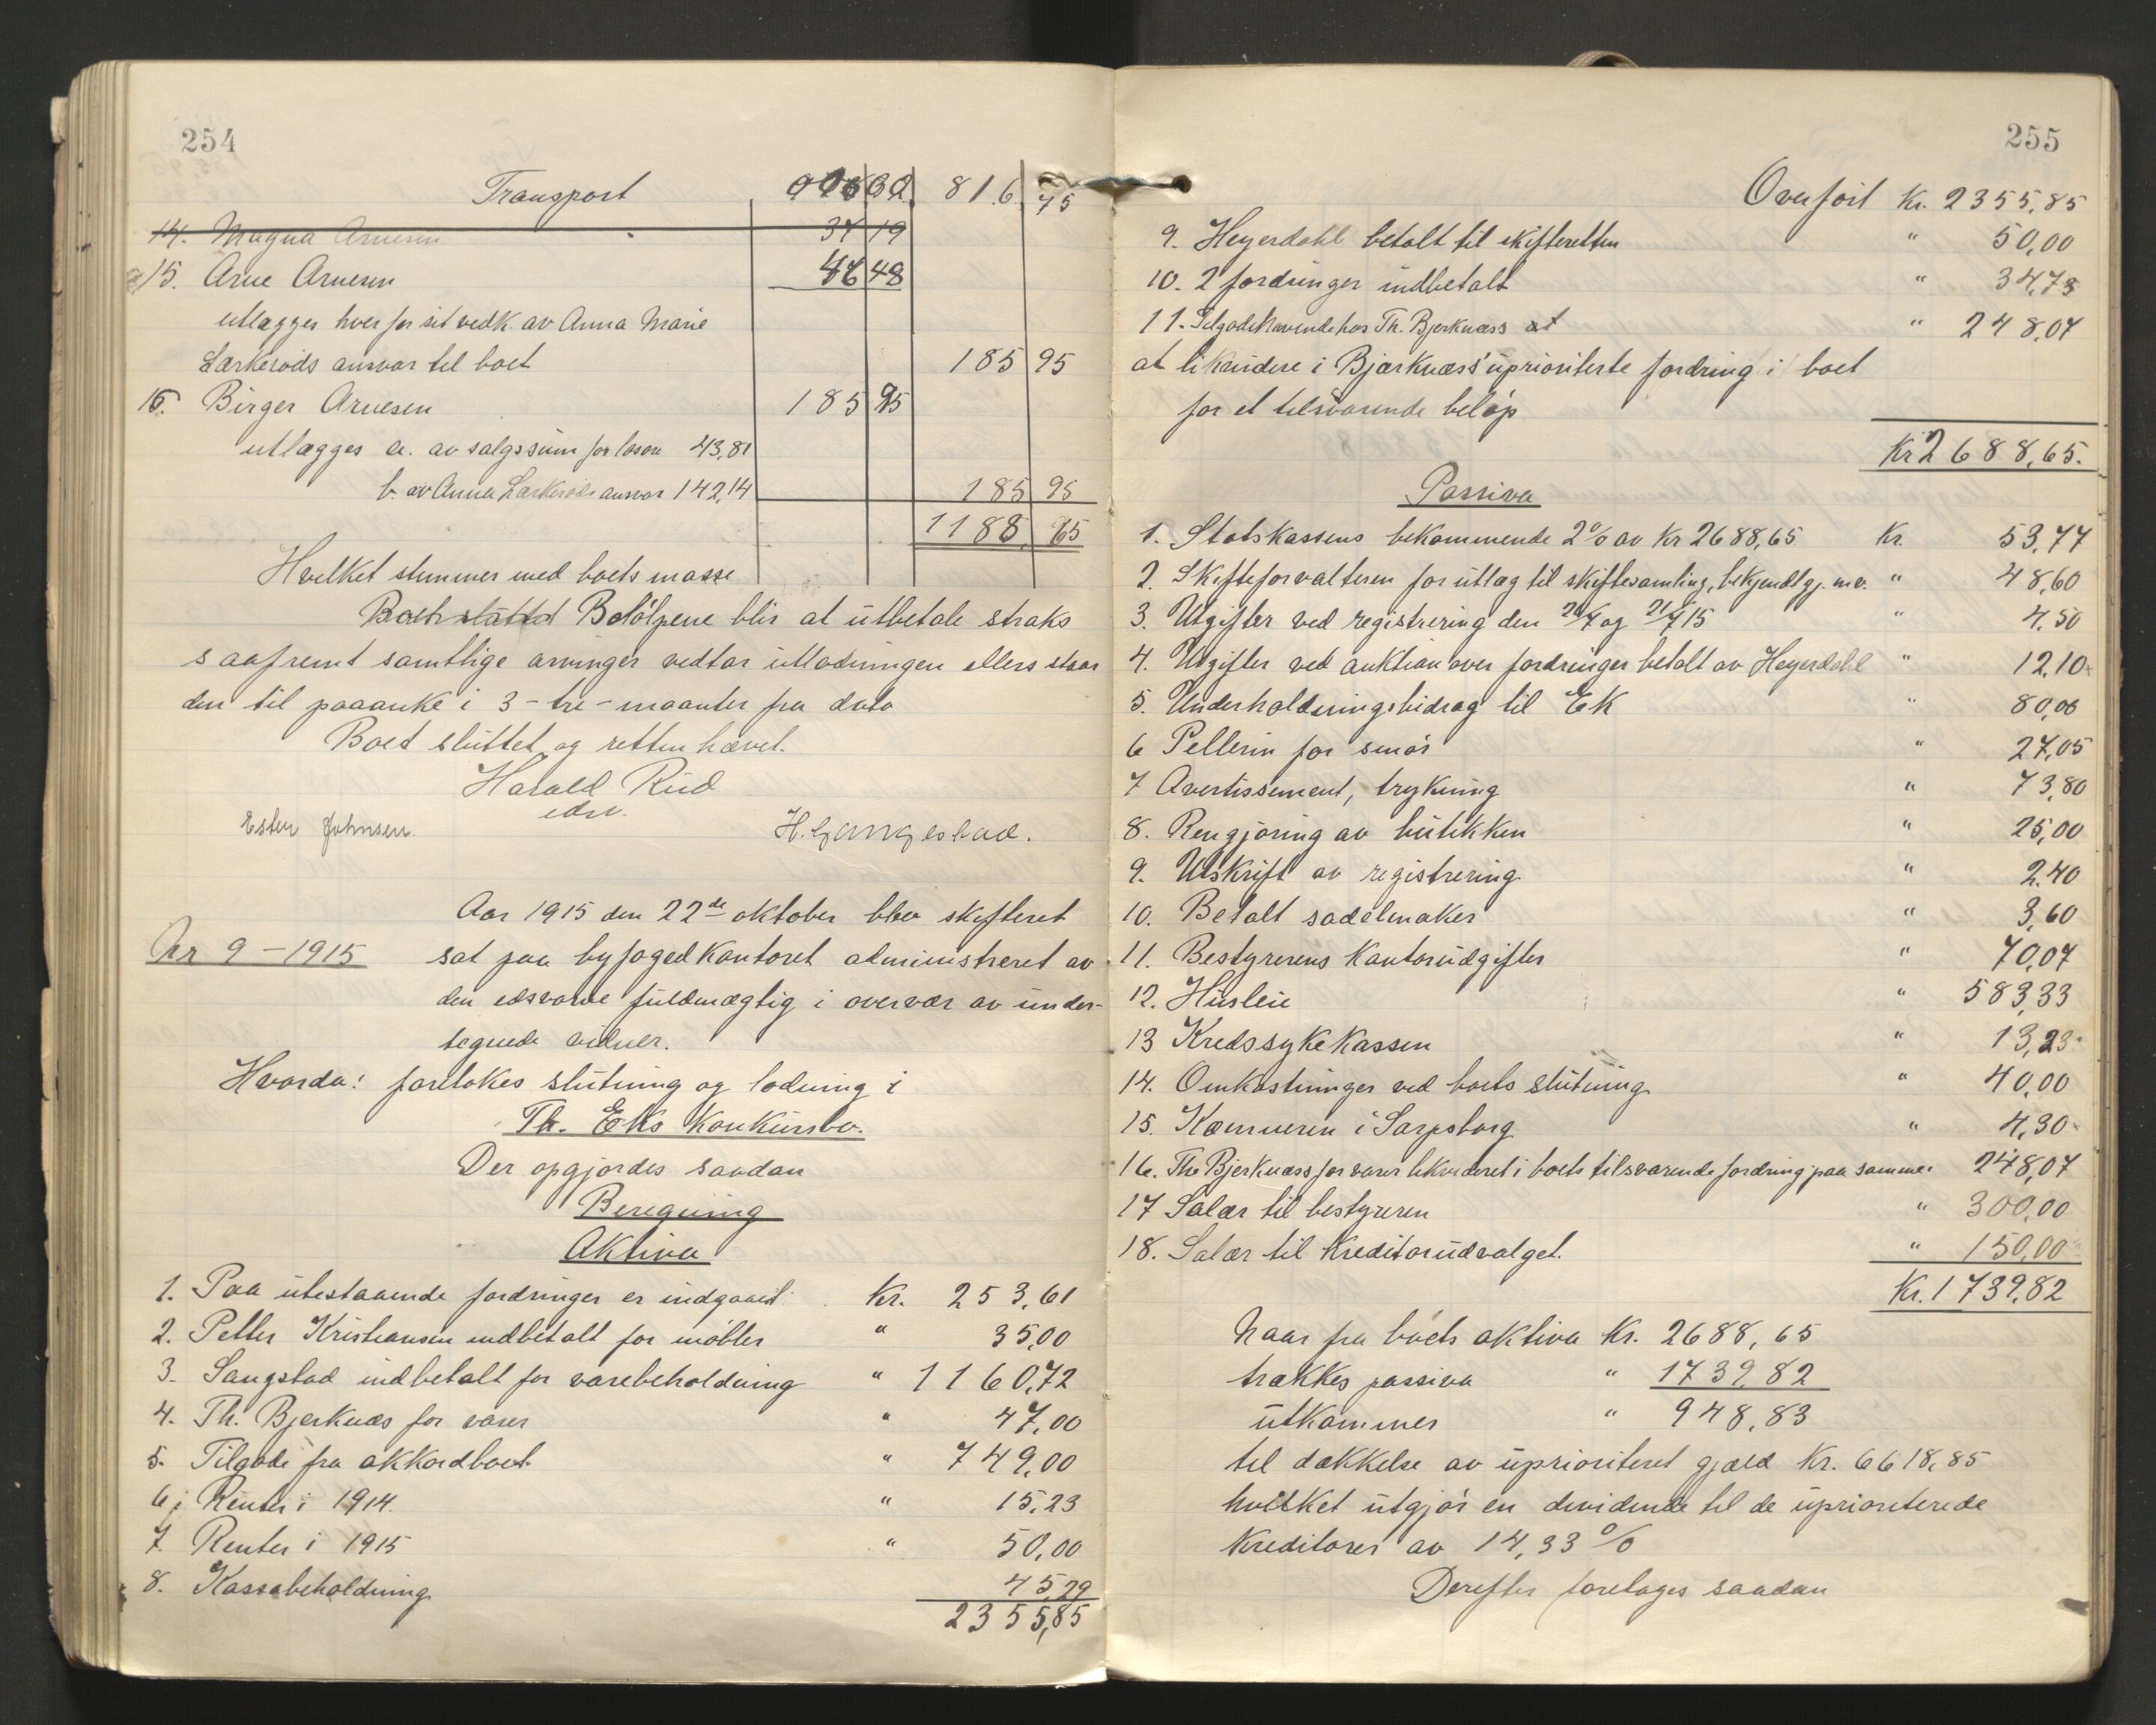 254
Transport 816 75
14. Magna Arnesen 37 19
15. Arne Arnesen 48
utlægges hver for sit vedk. av Anna Marie
Lærkeröds ansvar til boet 185 95
16. Birger Arnesen 185 95
utlægges a. av salgssum for løsøre 43,81
b. av Anna Lærkeröds ansvar 142,14 185 95
1188 65
Hvilket stemmer med boets masse
Boet sluttet Beløpene blir at utbetale straks
saafremt samtlige arvinger vedtar utlodningen ellers staar
den til paaanke i 3-tre-maaneter fra dato
Boet sluttet og retten hævet.
Harald Rud
edsv.
Ester Johnsen. H. Gangestad.
Aar 1915 den 22de oktober blev skifteret
Nr 9 – 1915 sat paa byfogedkontoret administreret av
den edsvorne fuldmægtig i overvær av under-
tegnede vidner.
Hvorda: foretokes slutning og lodning i
Th. Eks konkursbo.
Der opgjordes saadan
Beregning
Aktiva
1. Paa utestaaende fordringer er indgaaet Kr. 253,61
2. Petter Kristiansen indbetalt for møbler " 35,00
3. Sangstad indbetalt for varebeholdning " 1160,72
4. Th. Bjerknæs for varer " 47,00
5. Tilgode fra akkordboet " 749,00
6. Renter i 1914. " 15,23
7. Renter i 1915 " 50,00
8. Kassabeholdning 45,29
2355,85
255
Overført Kr. 2355,85
9. Heyerdahl betalt til skifteretten " 50,00
10. 2 fordringer indbetalt " 34,73
11. Tilgodehavende hos Th. Bjerknæss at " 248,07
at likvidere i Bjærknæss' uprioriterte fordring i boet
for et tilsvarende beløp
Kr 2688,65.
Passiva
1. Statskassens bekommende 2% av Kr 2688,65 Kr. 53,77
2. Skifteforvalteren for utlæg til skiftesamling, bekjendtgj. m.v. " 48,60
3. Utgifter ved registrering den 20/4 og 21/4 15 " 4,50
4. Utgifter ved auktion over fordringer betalt av Heyerdahl " 12,10
5. Underholdningsbidrag til Ek " 80,00
6 Pellerin for smør " 27,05
7 Avertissement, trykning " 73,80
8. Rengjøring av butikken " 25,00
9. Utskrift av registrering " 2,40
10. Betalt sadelmaker " 3,60
11. Bestyrerens kontorudgifter " 70,07
12. Husleie " 583,33
13 Kredssykekassen " 13,23
14. Omkostninger ved boets slutning " 40,00
15. Kæmneren i Sarpsborg " 4,30
16. Th Bjerknæss for varer likvideret i boets tilsvarende fordring paa samme 248,07
17 Salær til bestyreren " 300,00
18. Salær til kreditorudvalget. " 150,00
Kr. 1739,82
Naar fra boets aktiva Kr. 2688,65
trækkes passiva " 1739,82
utkommer " 948,83
til dækkelse av uprioritert gjæld Kr. 6618,85
hvilket utgjør en dividende til de uprioriterede
kreditorer av 14,33 %
Derefter foretages saadan